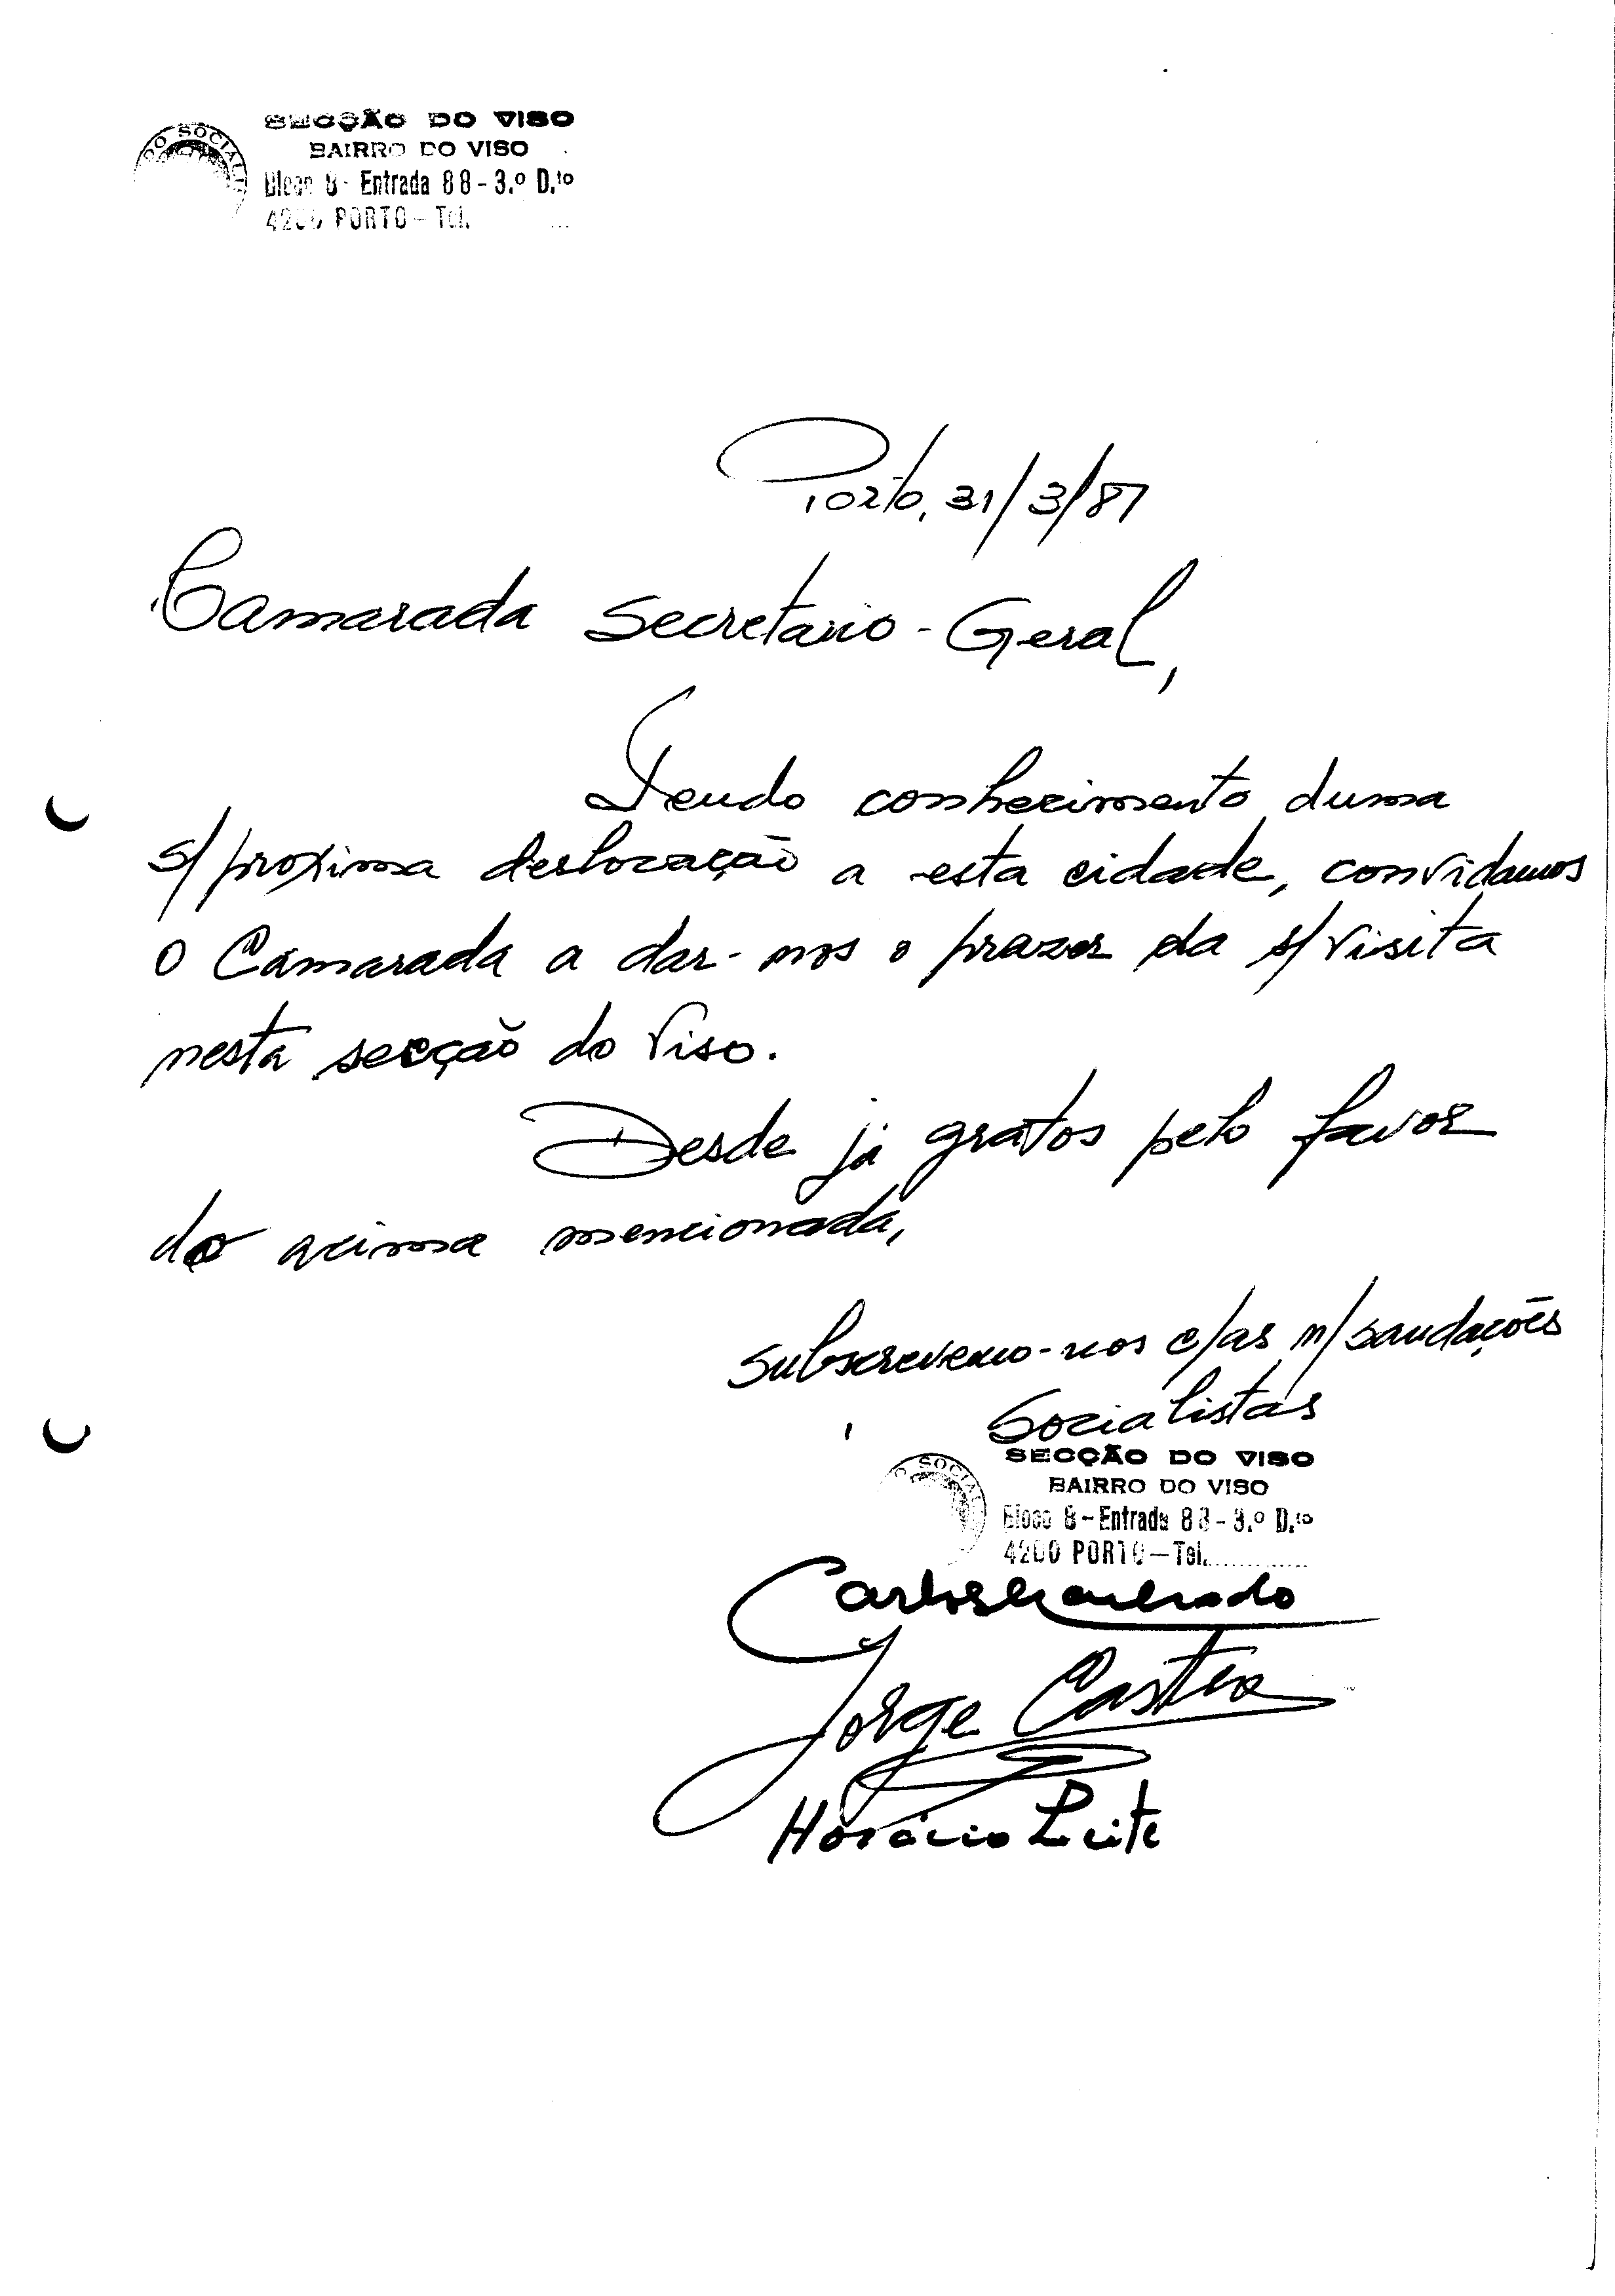 DO SOCIALI
SECÇÃO DO VISO
BAIRRO DO VISO
Bloco 8 - Entrada 88 - 3.º D.to
4200 PORTO - Tel.
Porto, 31/3/87
Camarada Secretario-Geral,
Tendo conhecimento duma
s/ proxima deslocação a esta cidade, convidamos
o Camarada a dar-nos o prazer da s/ visita
nesta secção do Viso.
Desde já gratos pelo favor
do acima mencionada,
subscrevemo-nos c/as n/ saudações
Socialistas
O SOCIAL
SECÇÃO DO VISO
BAIRRO DO VISO
Bloco 8 - Entrada 88 - 3.º D.to
4200 PORTO - Tel.............
Carlos
Jorge Castro
Horácio Leite